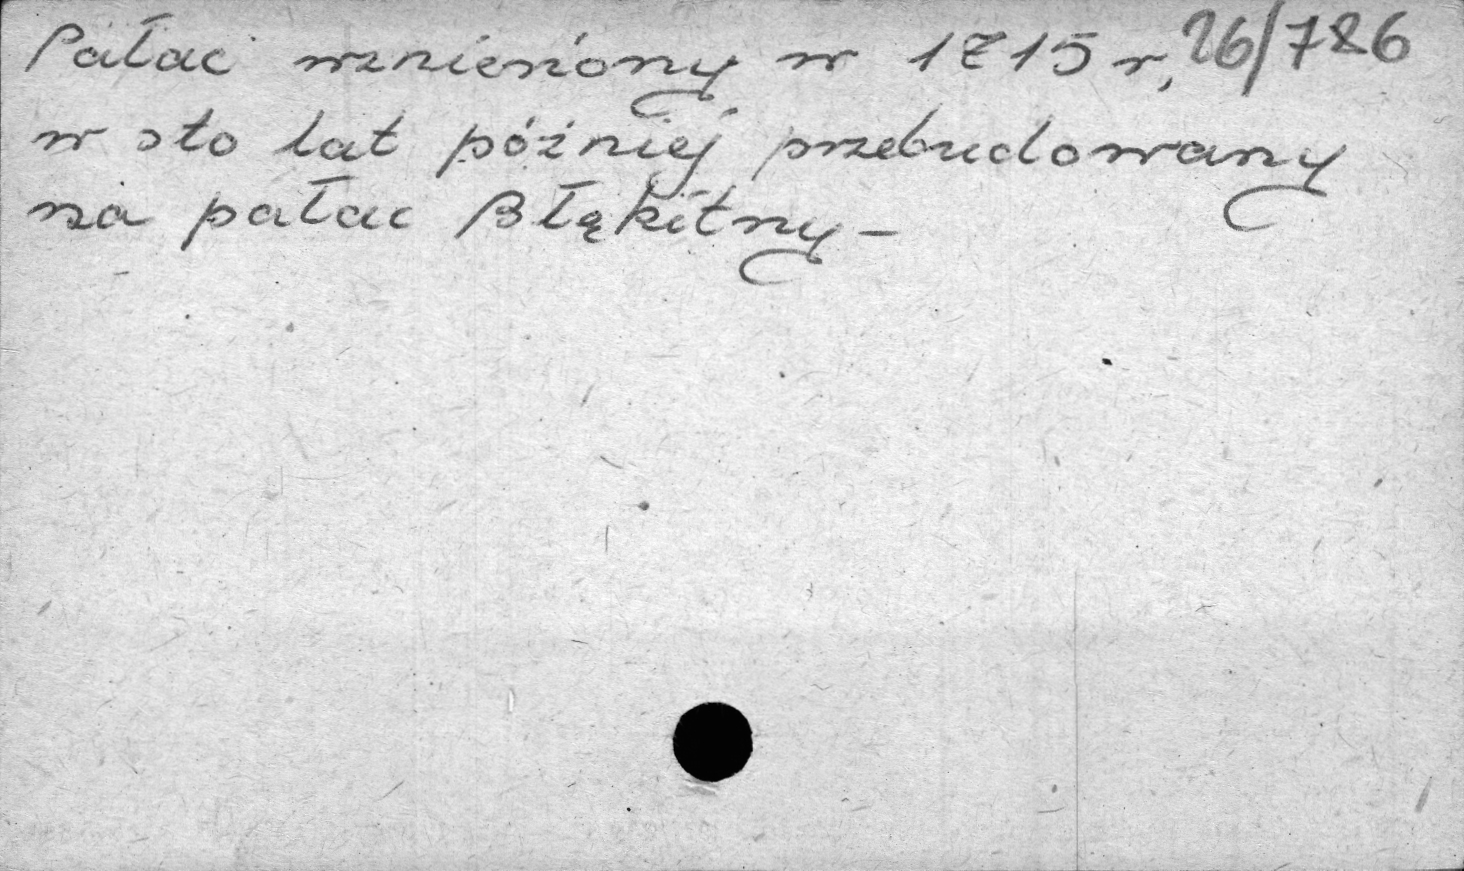 Pałac wzniesiony w 1715 r, 26/786
w sto lat później przebudowany
na pałac Błękitny -